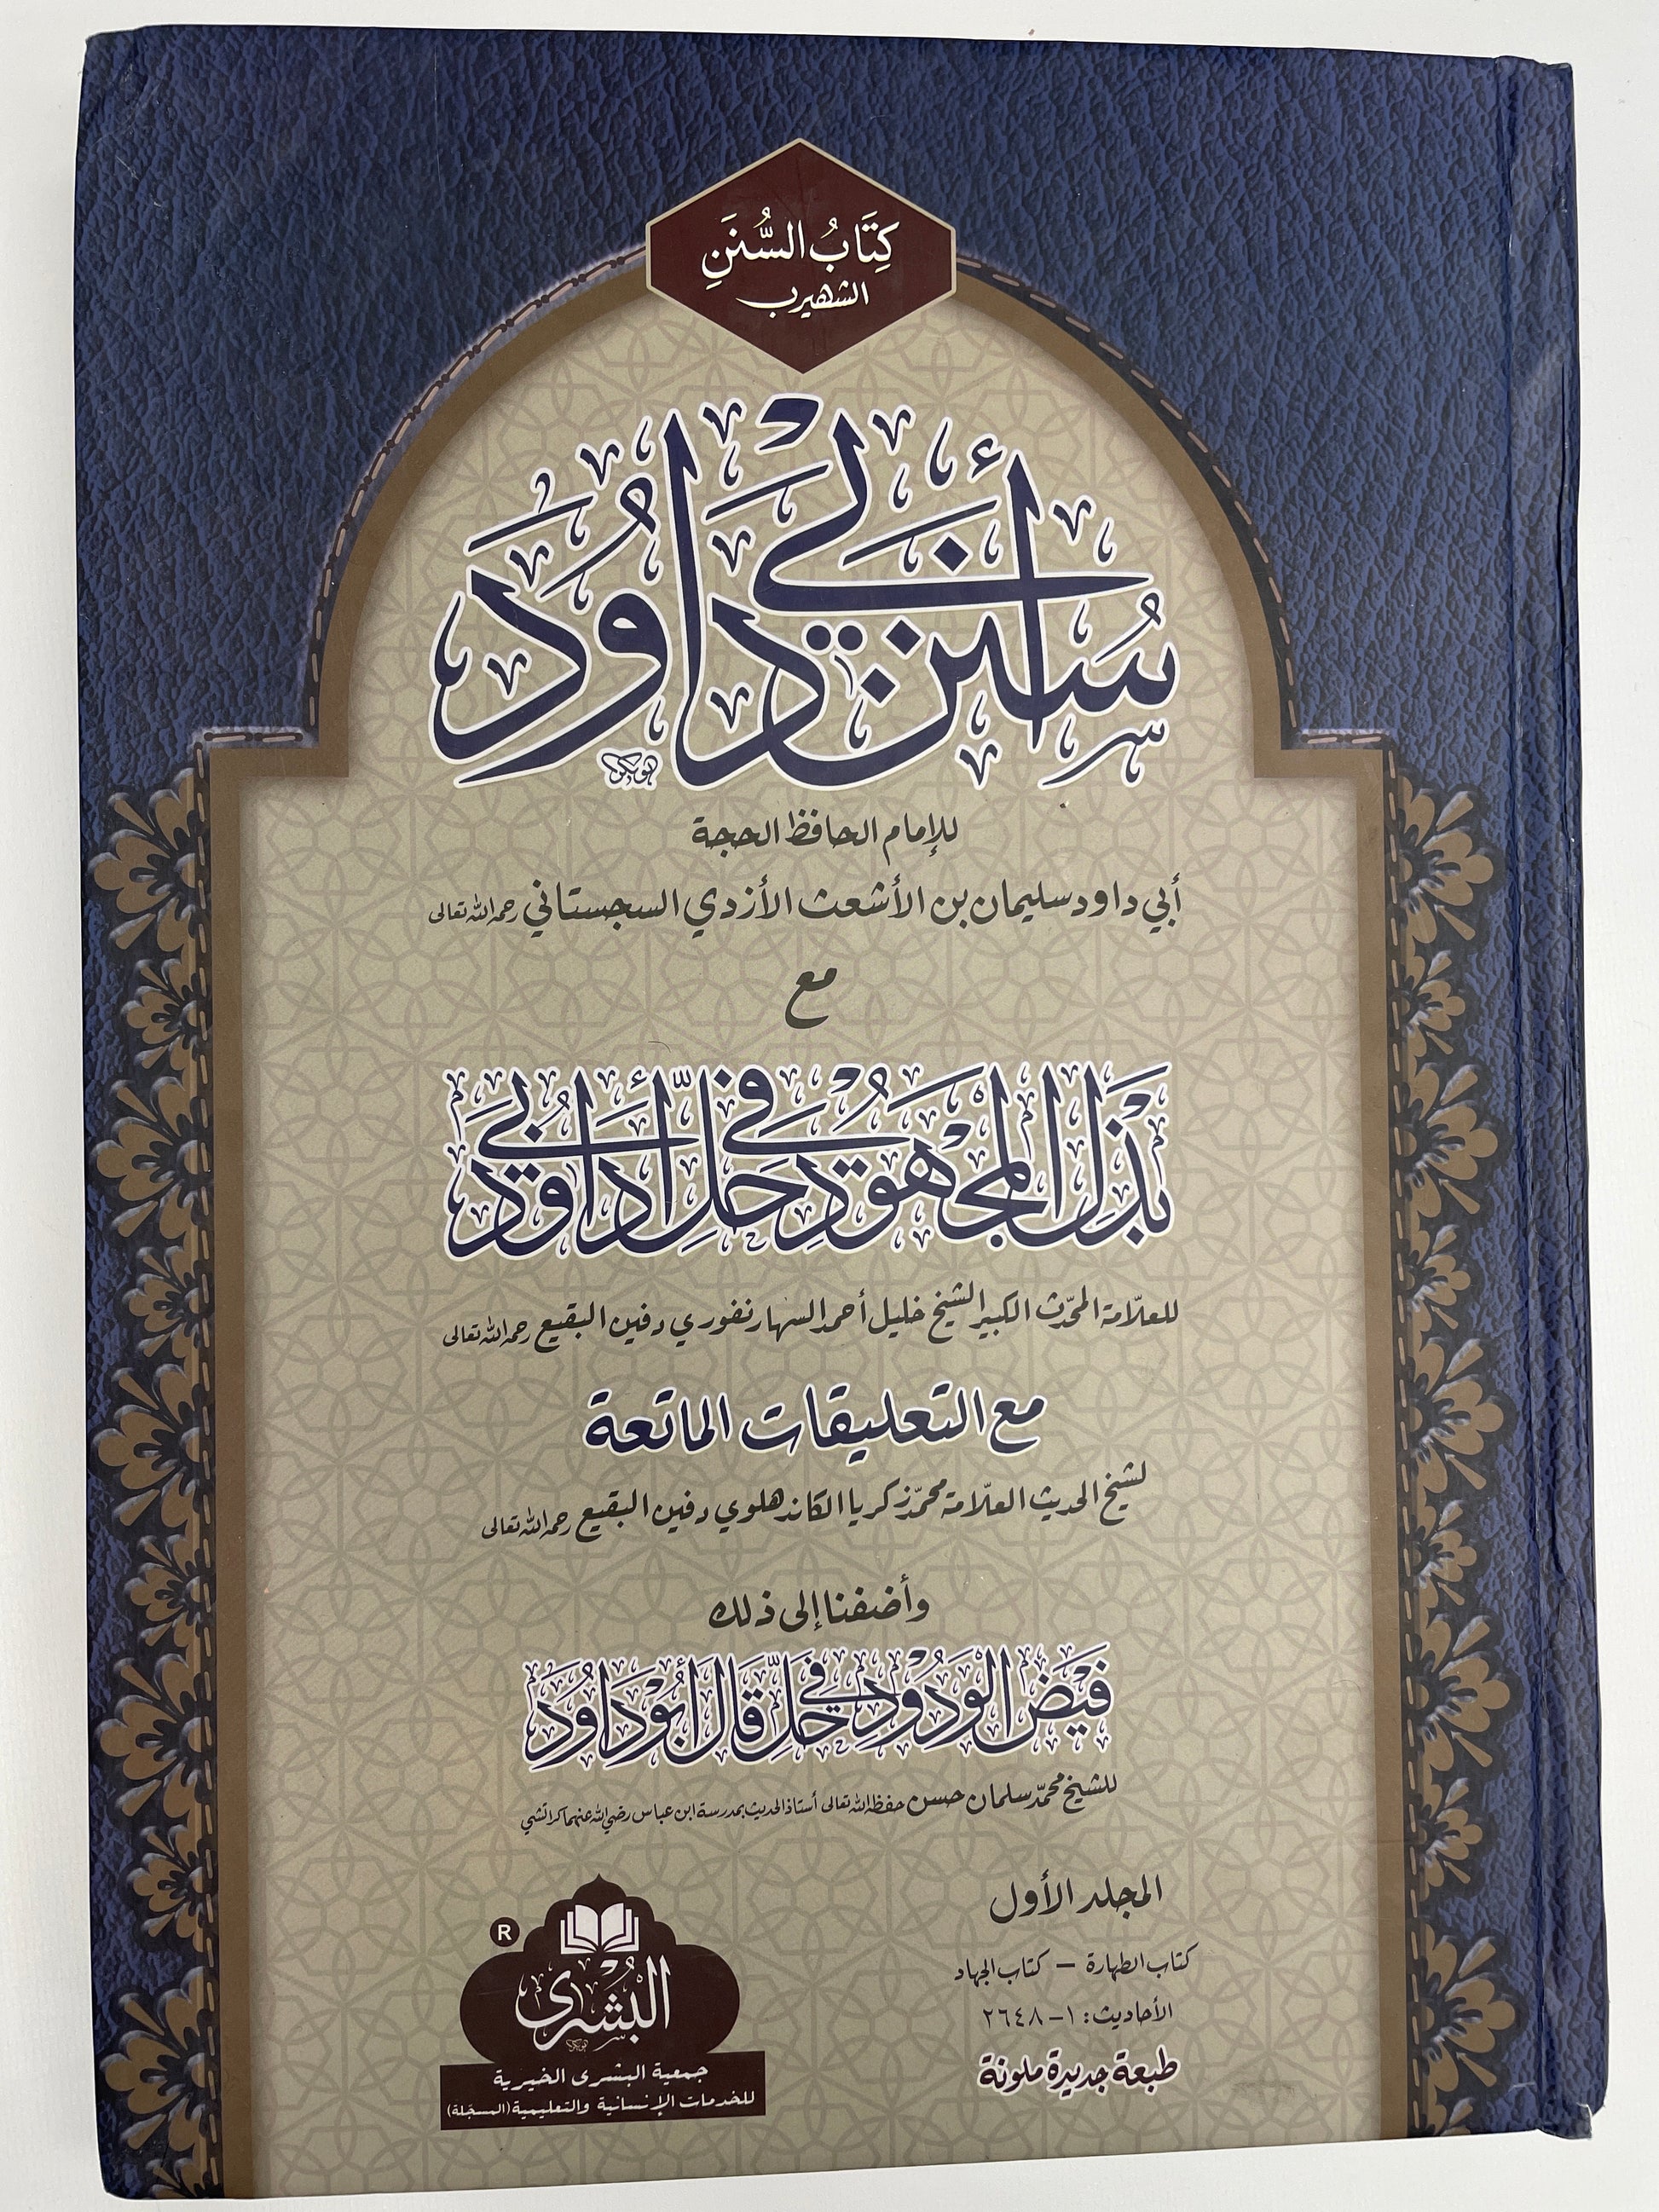 كِتَابُ السُّنَنِ
الشهير بـ
سُنَن أَبِي دَاوُد
للإمام الحافظ الحجة
أبي داود سليمان بن الأشعث الأزدي السجستاني رحمه الله تعالى
مع
بَذْلُ المَجْهُودِ فِي حَلِّ أَبِي دَاوُد
للعلّامة المحدّث الكبير الشيخ خليل أحمد السهارنفوري دفين البقيع رحمه الله تعالى
مع التعليقات الماتعة
لشيخ الحديث العلّامة محمّد زكريا الكاندهلوي دفين البقيع رحمه الله تعالى
وأضفنا إلى ذلك
فَيْضُ الوَدُودِ فِي حَلِّ قَالَ أَبُو دَاوُدَ
للشيخ محمّد سلمان حسن حفظه الله تعالى أستاذ الحديث بمدرسة ابن عباس رضي الله عنهما كراتشي
المجلد الأول
كتاب الطهارة – كتاب الجهاد
الأحاديث: ١–٢٦٤٨
طبعة جديدة ملونة
R
البُشْرى
جمعية البشرى الخيرية
للخدمات الإنسانية والتعليمية (المسجّلة)